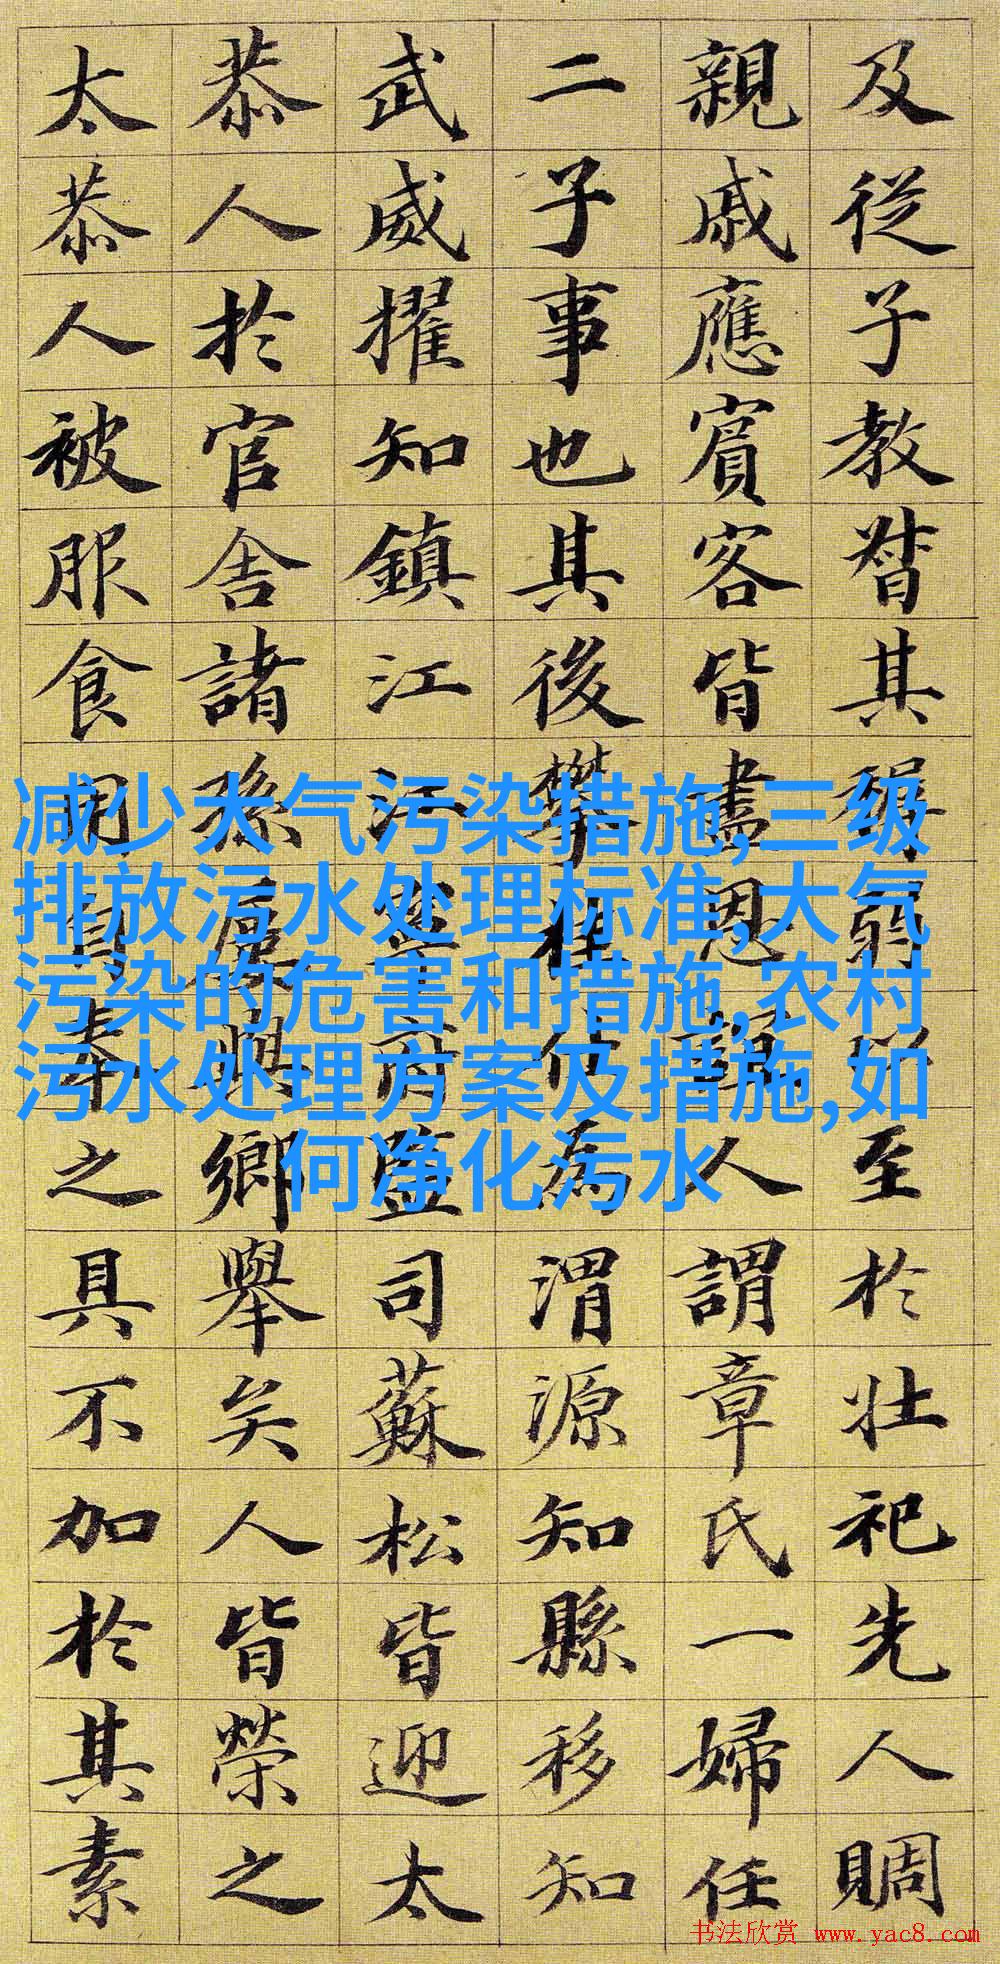 及從子教督其弱至於壯祀先人賙
親戚應賓客皆盡恩誼人謂章氏一婦任
二子事也其後攀桂仕為渭源知縣移知
武威擢知鎮江江府監司蘇松皆迎太
恭人於官舍諸孫鄉舉矣人皆榮之
太恭人被服食用自奉之具不加於其素
减少大气污染措施,三级
排放污水处理标准,大气
污染的危害和措施,农村
污水处理方案及措施,如
何净化污水
书法欣赏 www.yac8.com